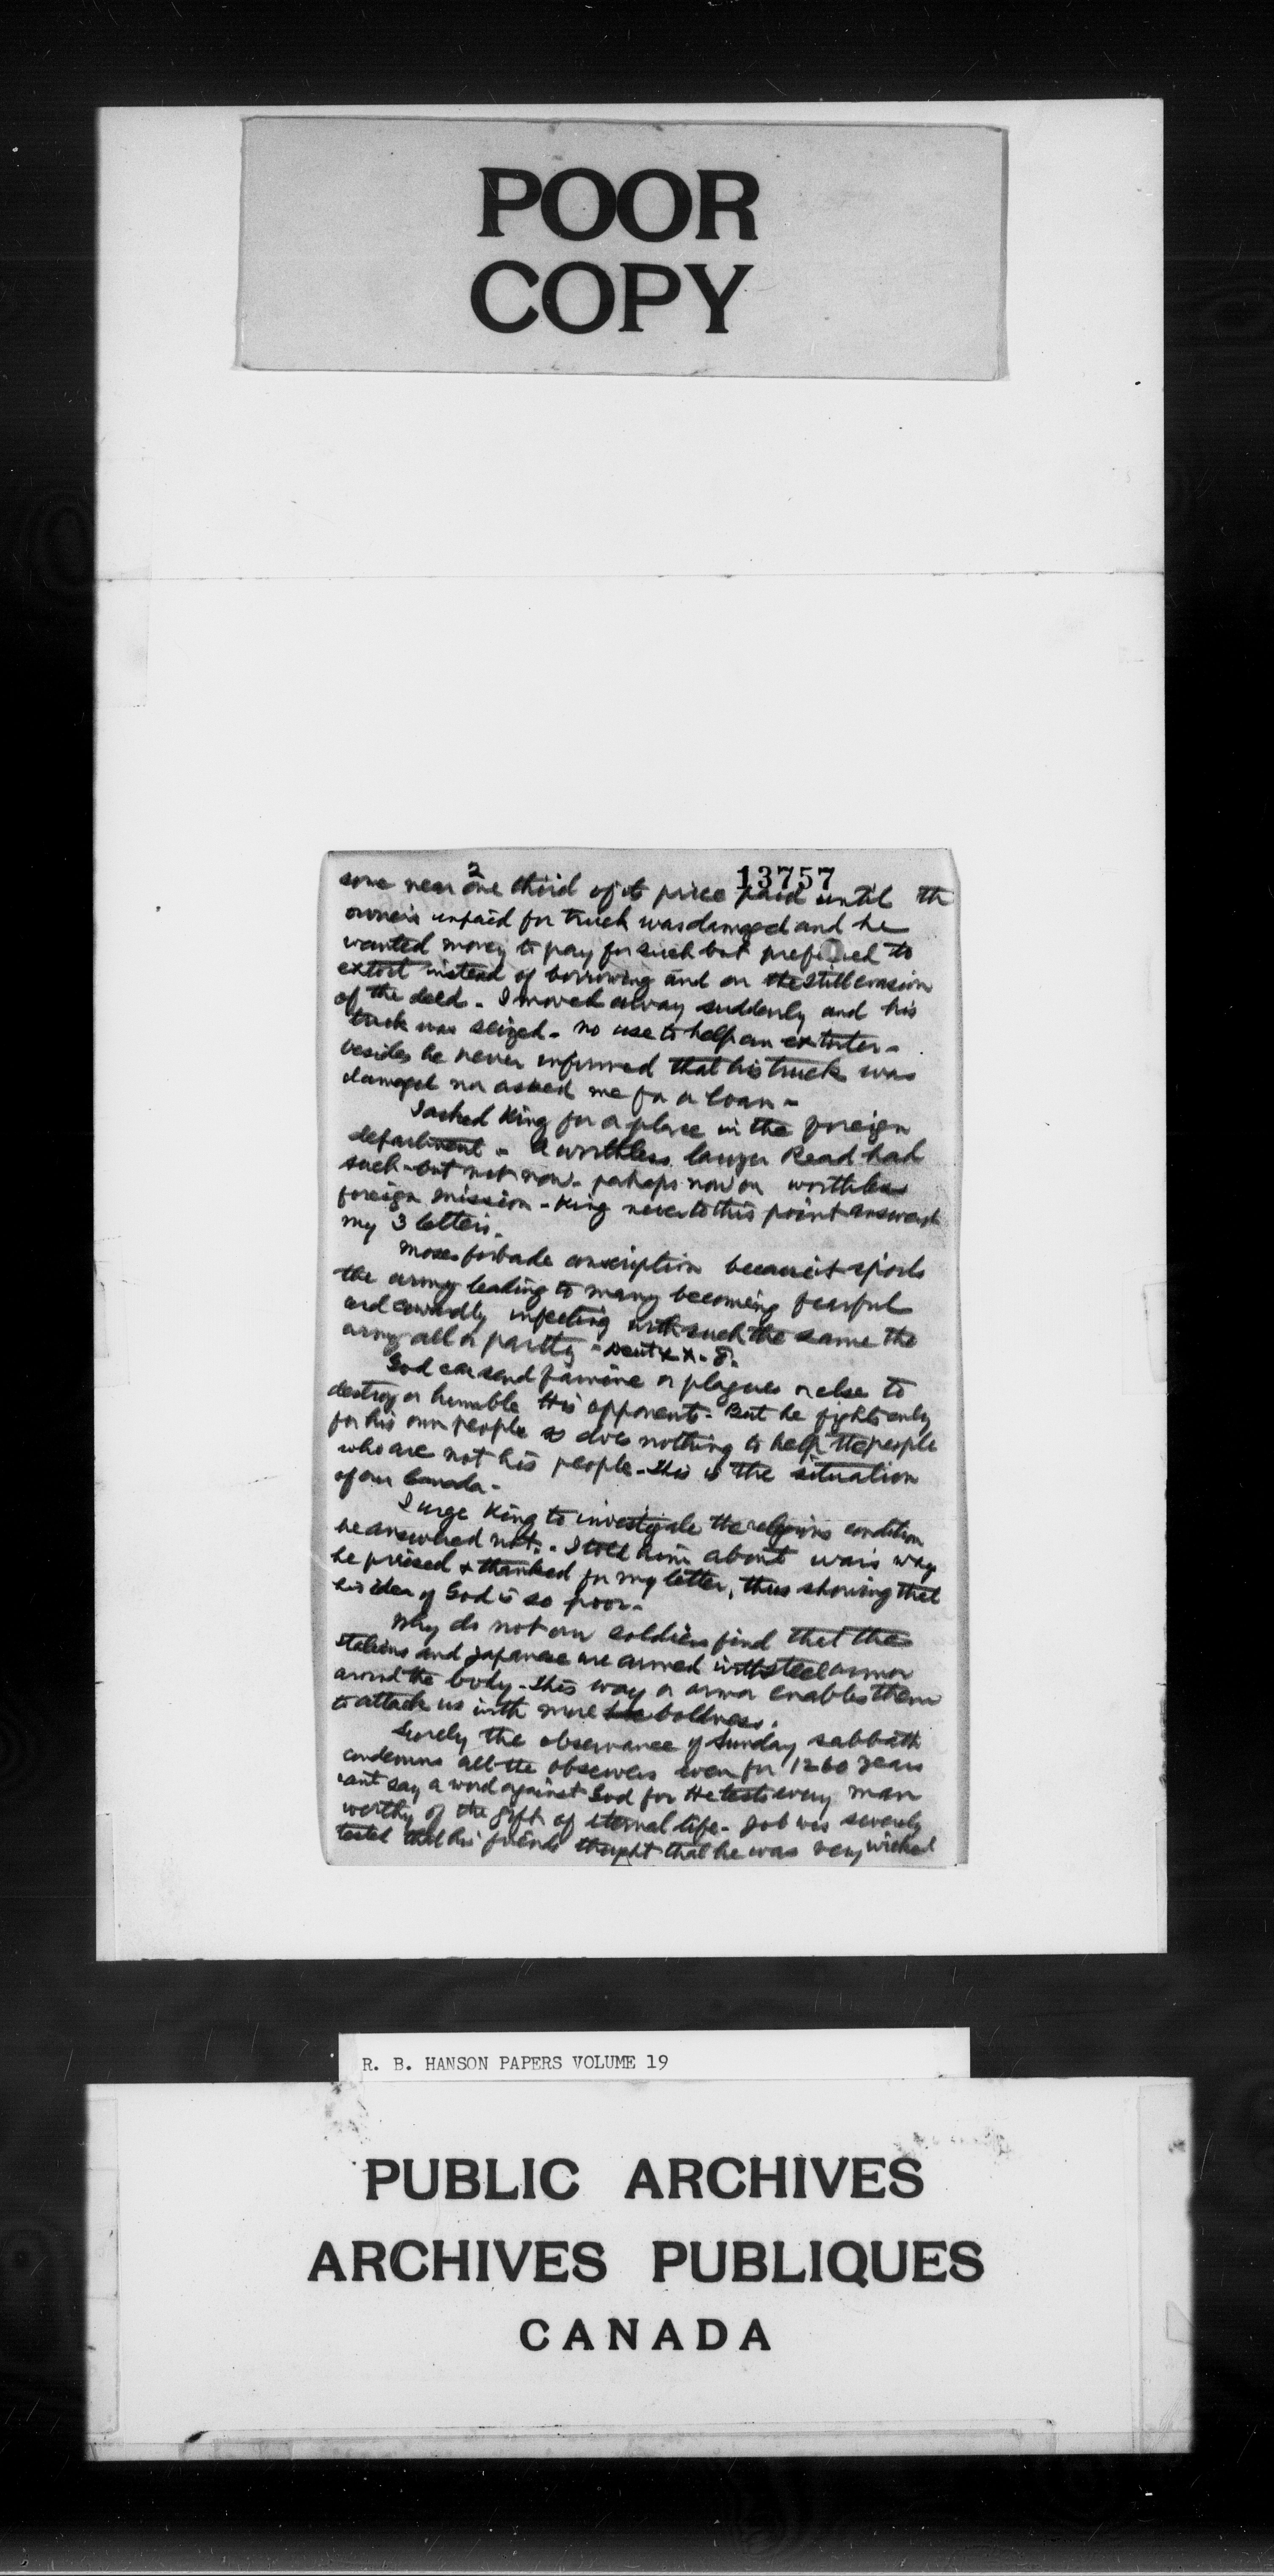 POOR
COPY
2
13757
some near one third of it price paid until th
owner's unpaid for truck was damaged and he
wanted money to pay for such but prefered to
extort instead of borrowing and on the still evasion
of the deed - I moved away suddenly and his
truck was seized - no use to help an extorter -
besides he never informed that his truck was
damaged nor asked me for a loan -
I asked King for a place in the foreign
department - A worthless lawyer Read had
such - but not now - perhaps now on worthless
foreign mission - King never to this point answered
my 3 letters.
Moses forbade conscription because it spoils
the army leading to many becoming fearful
and cowardly infecting with such the same the
army all or partly - Deut XX - 8.
God can send famine or plagues or else to
destroy or humble His opponents - But he fights only
for his own people so does nothing to help the people
who are not his people - This is the situation
of our Canada -
I urge King to investigate the religious condition
he answered not. - I told him about war's way
he prised & thanked for my letter, thus showing that
his idea of God is so poor -
Why do not our soldiers find that the
Italians and Japanese are armed with steel armor
around the body - This way or armor enables them
to attack us with more boldness.
Surely the observance of Sunday sabbath
condemns all the observers even for 1260 years
can't say a word against God for He tests every man
worthy of the gift of eternal life - Job was severely
tested that his friends thought that he was very wicked
R. B. HANSON PAPERS VOLUME 19
PUBLIC ARCHIVES
ARCHIVES PUBLIQUES
CANADA